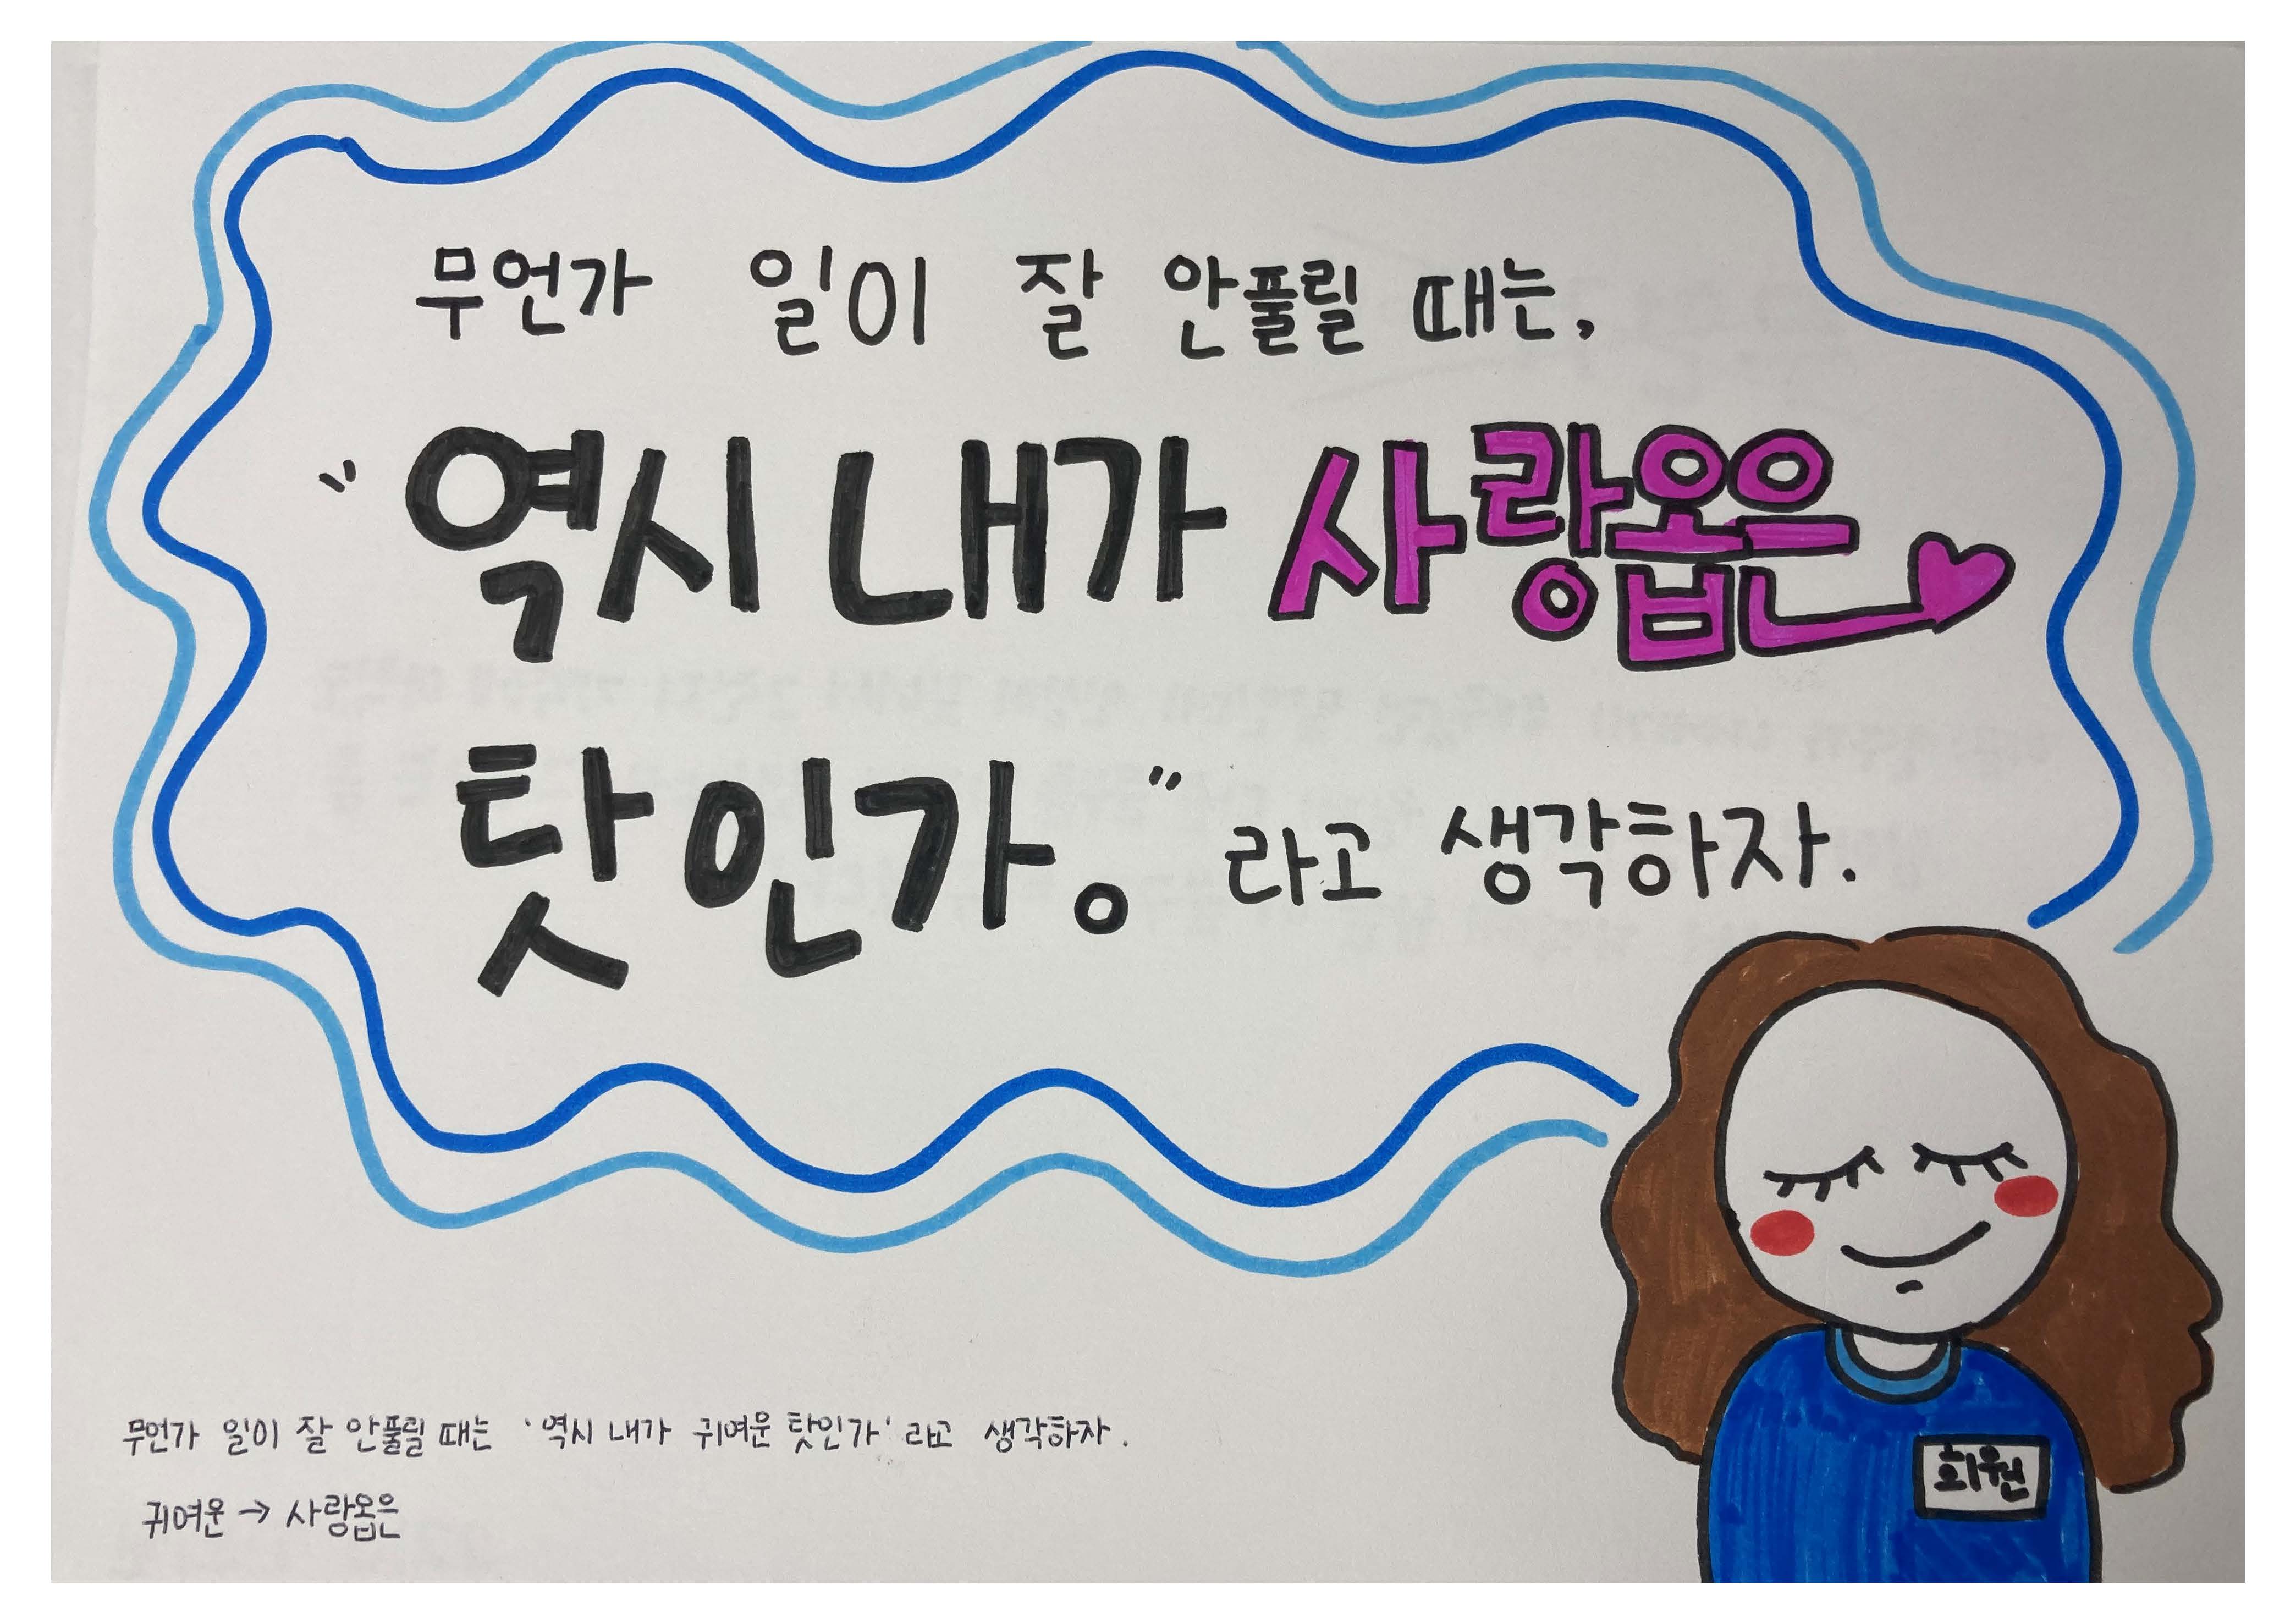 무언가 일이 잘 안풀릴 때는,
"역시 내가 사랑옵은
탓인가。" 라고 생각하자.
희원
무언가 일이 잘 안풀릴 때는 '역시 내가 귀여운 탓인가' 라고 생각하자.
귀여운 → 사랑옵은